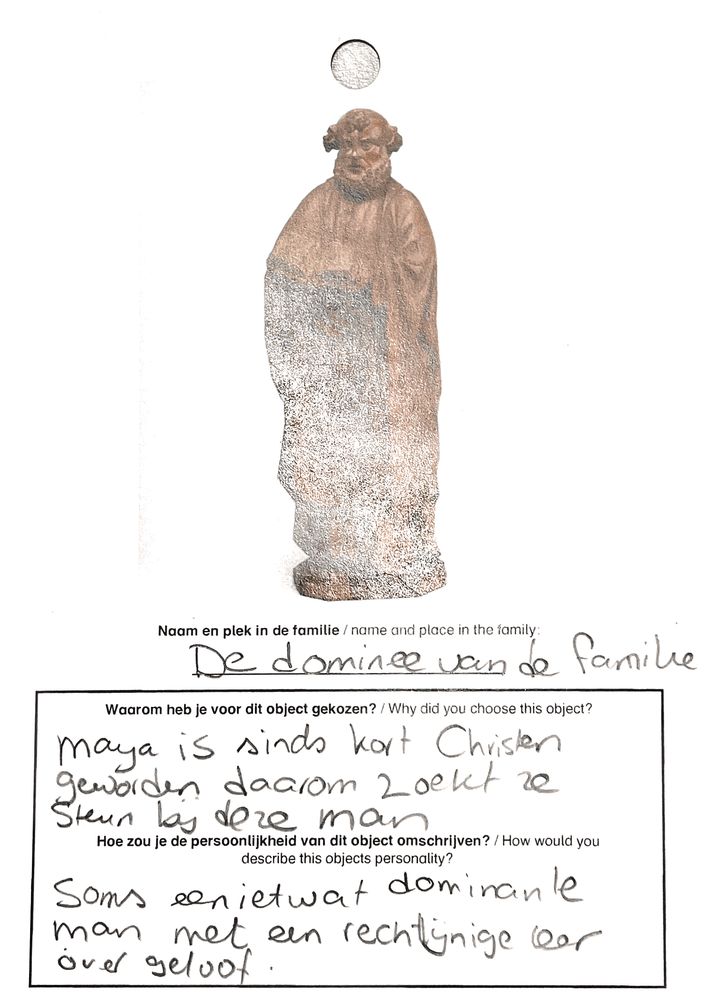 Naam en plek in de familie / name and place in the family:
De dominee van de familie
Waarom heb je voor dit object gekozen? / Why did you choose this object?
maya is sinds kort Christen
geworden daarom zoekt ze
Steun bij deze man
Hoe zou je de persoonlijkheid van dit object omschrijven? / How would you
describe this objects personality?
Soms een ietwat dominante
man met een rechtlijnige leer
over geloof.